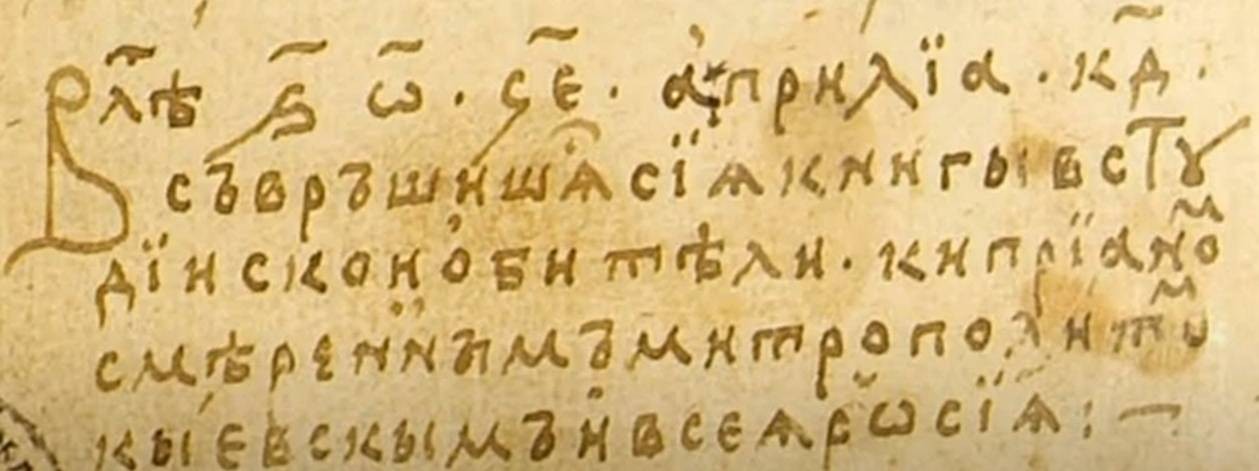 В лѣ҃ ҂ѕ҃ ѿ҃ · ч҃е · а҆прилїа · к҃д ·
съвръшишѧ сїѧ книгы в стꙋ
дїискои ѻбитѣли · кипрїано͏ⷨ
смѣренныимъ митрополито͏ⷨ
кыевскымъ и҆ всеѧ рѡсїѧ : —